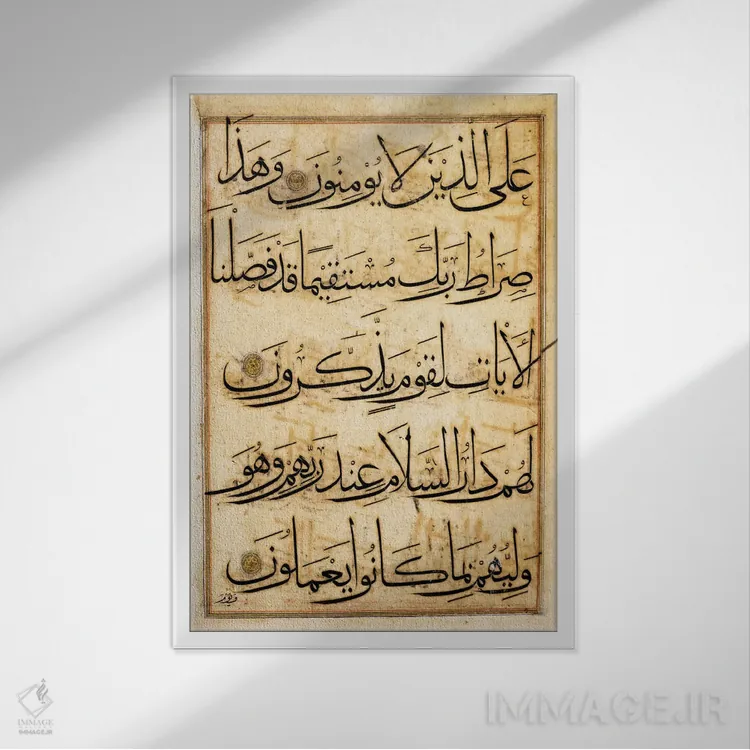 عَلَى الَّذِينَ لَا يُؤْمِنُونَ وَهَذَا
صِرَاطُ رَبِّكَ مُسْتَقِيمًا قَدْ فَصَّلْنَا
الْآيَاتِ لِقَوْمٍ يَذَّكَّرُونَ
لَهُمْ دَارُ السَّلَامِ عِنْدَ رَبِّهِمْ وَهُوَ
وَلِيُّهُمْ بِمَا كَانُوا يَعْمَلُونَ
IMMAGE
IMMAGE.IR
IMMAGE.IR